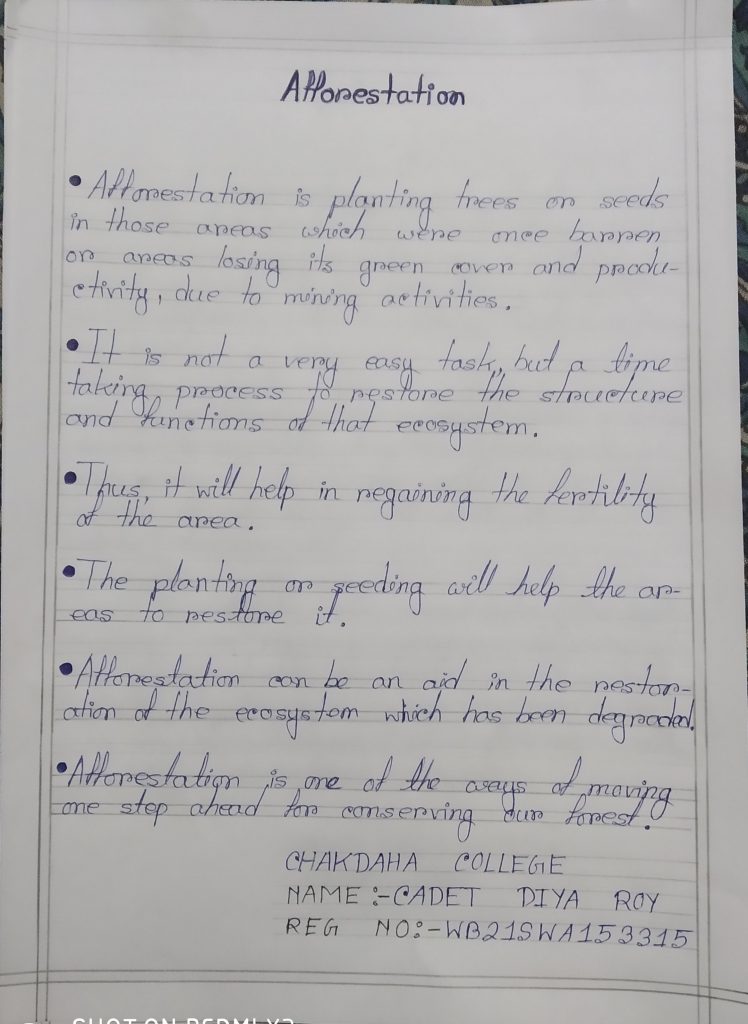 Afforestation
• Afforestation is planting trees or seeds
in those areas which were once barren
or areas losing its green cover and produ-
ctivity, due to mining activities.
• It is not a very easy task, but a time
taking process to restore the structure
and functions of that ecosystem.
• Thus, it will help in regaining the fertility
of the area.
• The planting or seeding will help the ar-
eas to restore it.
• Afforestation can be an aid in the restor-
ation of the ecosystem which has been degraded.
• Afforestation is one of the ways of moving
one step ahead for conserving our forest.
CHAKDAHA COLLEGE
NAME :- CADET DIYA ROY
REG NO:- WB21SWA153315